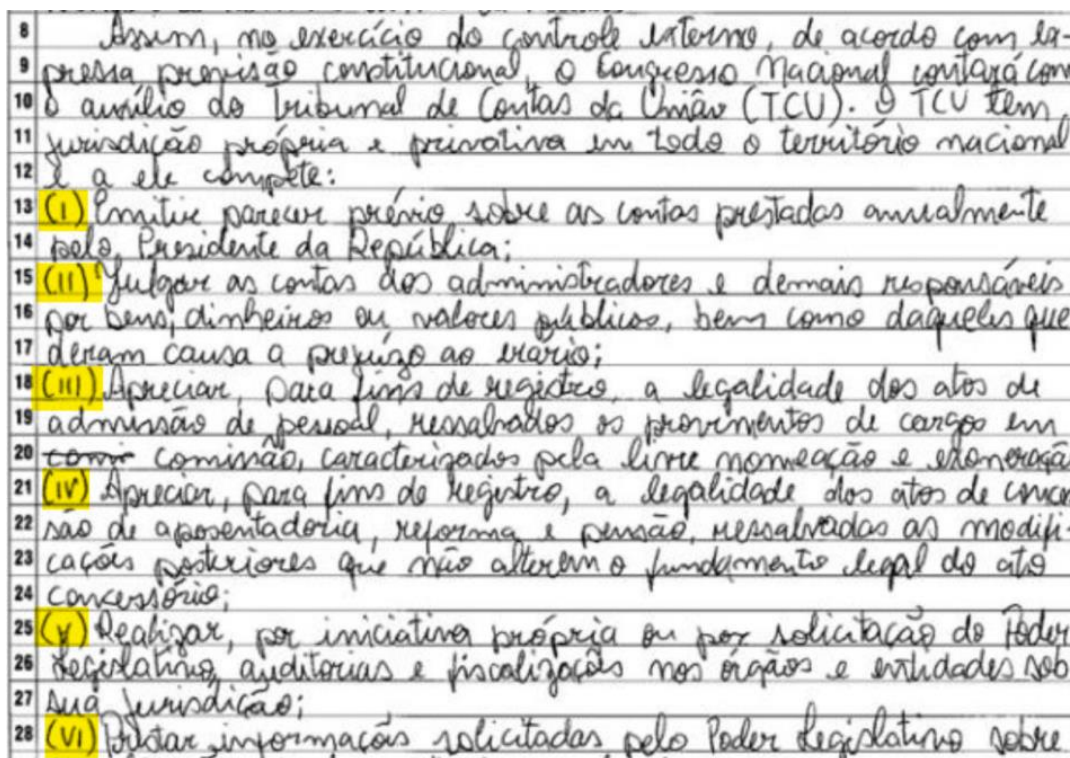 8 Assim, no exercício do controle externo, de acordo com ex-
9 pressa previsão constitucional, o Congresso Nacional contará com
10 o auxílio do Tribunal de Contas da União (TCU). O TCU tem
11 jurisdição própria e privativa em todo o território nacional
12 e a ele compete:
13 (I) Emitir parecer prévio sobre as contas prestadas anualmente
14 pelo Presidente da República;
15 (II) Julgar as contas dos administradores e demais responsáveis
16 por bens, dinheiros ou valores públicos, bem como daqueles que
17 deram causa a prejuízo ao erário;
18 (III) Apreciar, para fins de registro, a legalidade dos atos de
19 admissão de pessoal, ressalvados os provimentos de cargos em
20 comissão, caracterizados pela livre nomeação e exoneração
21 (IV) Apreciar, para fins de registro, a legalidade dos atos de conces
22 são de aposentadoria, reforma e pensão, ressalvadas as modifi-
23 cações posteriores que não alterem o fundamento legal do ato
24 concessório;
25 (V) Realizar, por iniciativa própria ou por solicitação do Poder
26 Legislativo, auditorias e fiscalizações nos órgãos e entidades sob
27 sua jurisdição;
28 (VI) Prestar informações solicitadas pelo Poder Legislativo sobre